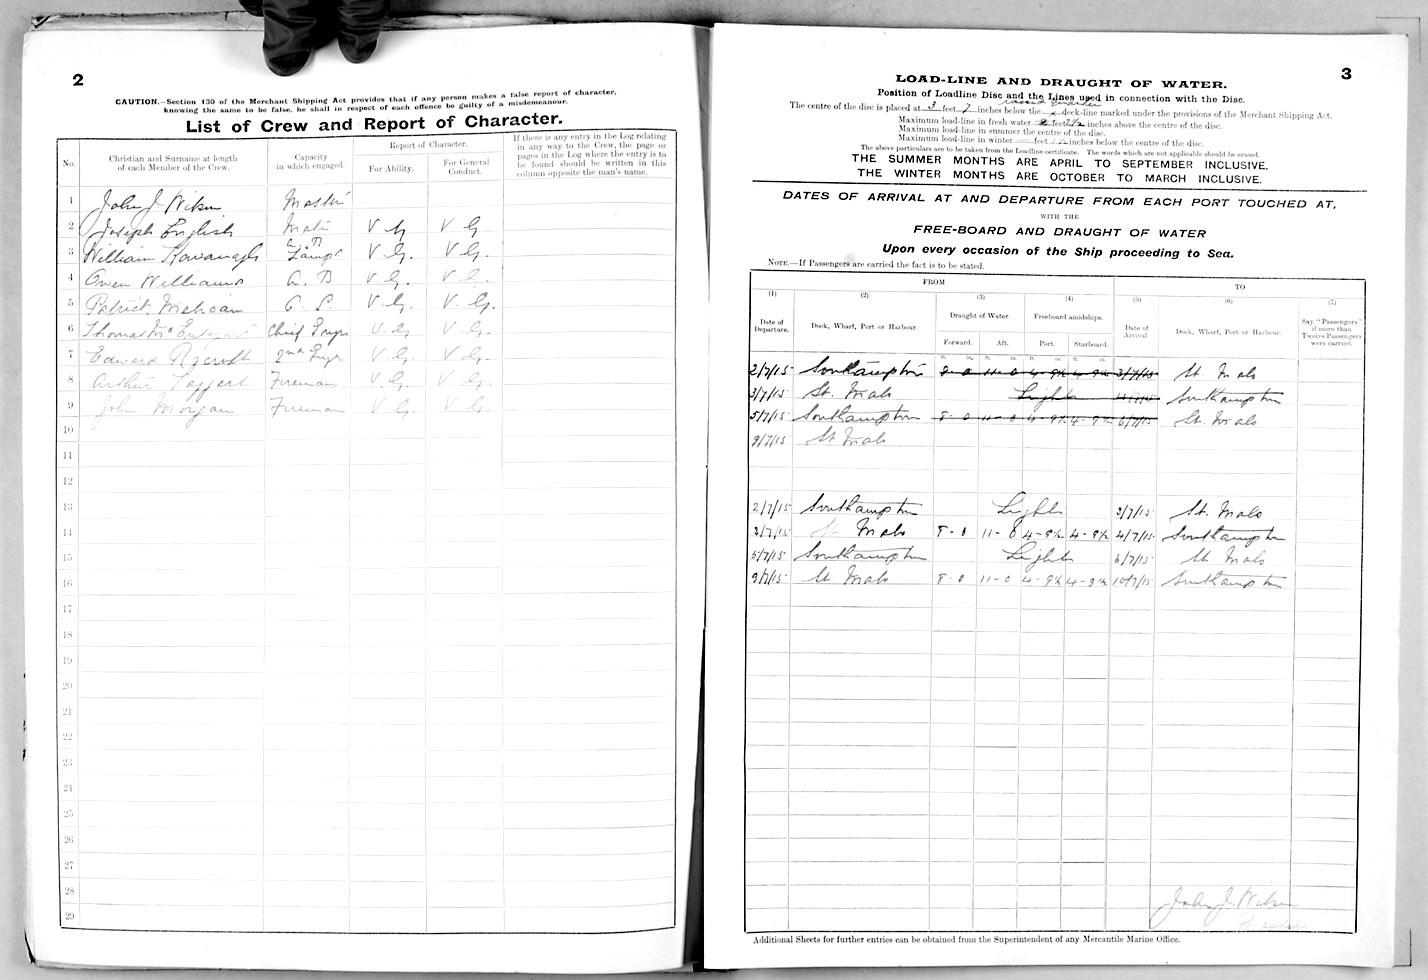 2
CAUTION.—Section 130 of the Merchant Shipping Act provides that if any person makes a false report of character,
knowing the same to be false, he shall in respect of each offence be guilty of a misdemeanour.
List of Crew and Report of Character.
No.
Christian and Surname at length
of each Member of the Crew.
Capacity
in which engaged.
Report of Character.
For Ability.
For General
Conduct.
If there is any entry in the Log relating
in any way to the Crew, the page or
pages in the Log where the entry is to
be found should be written in this
column opposite the man's name.
1 John J Wilson Master
2 Joseph English Mate V G V G
3 William Kavanagh A.B Lamps V.G. V.G.
4 Owen Williams A.B V.G. V.G.
5 Patrick A.B V.G. V.G.
6 Thomas Chief Engr V.G V.G.
7 Edward Rycroft 2nd Engr V.G. V.G.
8 Arthur Taggart Fireman V.G. V.G.
9 John Morgan Fireman V.G. V.G.
10
11
12
13
14
15
16
17
18
19
20
21
22
23
24
25
26
27
28
29
3
LOAD-LINE AND DRAUGHT OF WATER.
Position of Loadline Disc and the Lines used in connection with the Disc.
raised quarter
The centre of the disc is placed at 3 feet 7 inches below the deck-line marked under the provisions of the Merchant Shipping Act.
Maximum load-line in fresh water feet 2½ inches above the centre of the disc.
Maximum load-line in summer the centre of the disc.
Maximum load-line in winter — feet 1½ inches below the centre of the disc.
The above particulars are to be taken from the Loadline certificate. The words which are not applicable should be erased.
THE SUMMER MONTHS ARE APRIL TO SEPTEMBER INCLUSIVE.
THE WINTER MONTHS ARE OCTOBER TO MARCH INCLUSIVE.
DATES OF ARRIVAL AT AND DEPARTURE FROM EACH PORT TOUCHED AT,
WITH THE
FREE-BOARD AND DRAUGHT OF WATER
Upon every occasion of the Ship proceeding to Sea.
NOTE.—If Passengers are carried the fact is to be stated.
FROM
TO
(1) (2) (3) (4) (5) (6) (7)
Date of
Departure.
Dock, Wharf, Port or Harbour.
Draught of Water.
Forward. Aft.
Freeboard amidships.
Port. Starboard.
Date of
Arrival.
Dock, Wharf, Port or Harbour.
Say "Passengers"
if more than
Twelve Passengers
were carried.
ft. in. ft. in. ft. in. ft. in.
2/7/15 Southampton 8-0 11-0 4-9½ 4-9½ 3/7/15 St Malo
3/7/15 St. Malo Light 4/7/15 Southampton
5/7/15 Southampton 8-0 11-0 4-9½ 4-9½ 6/7/15 St. Malo
9/7/15 St Malo
2/7/15 Southampton Light 3/7/15 St. Malo
3/7/15 St Malo 8-0 11-0 4-9½ 4-9½ 4/7/15 Southampton
5/7/15 Southampton Light 6/7/15 St Malo
9/7/15 St Malo 8-0 11-0 4-9½ 4-9½ 10/7/15 Southampton
John J. Wilson
Master
Additional Sheets for further entries can be obtained from the Superintendent of any Mercantile Marine Office.